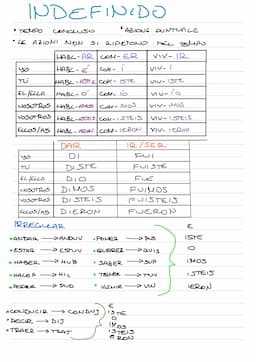 INDEFINIDO
• TEMPO CONCLUSO • AZIONI PUNTUALI
• LE AZIONI NON SI RIPETONO NEL TEMPO
HABL-AR COM-ER VIV-IR
YO HABL-É COM-Í VIV-Í
TÚ HABL-ASTE COM-ISTE VIV-ISTE
EL/ELLA HABL-Ó COM-IÓ VIV-IÓ
NOSOTROS HABL-AMOS COM-IMOS VIV-IMOS
VOSOTROS HABL-ASTEIS COM-ISTEIS VIV-ISTEIS
ELLOS/AS HABL-ARON COM-IERON VIV-IERON
DAR IR/SER
YO DI FUI
TÚ DISTE FUISTE
EL/ELLA DIO FUE
NOSOTROS DIMOS FUIMOS
VOSOTROS DISTEIS FUISTEIS
ELLOS/AS DIERON FUERON
IRREGULAR
• ANDAR → ANDUV • PONER → PUS E
• ESTAR → ESTUV • QUERER → QUIS ISTE
• HABER → HUB • SABER → SUP O
• HACER → HIC • TENER → TUV IMOS
• PODER → PUD • VENIR → VIN ISTEIS
IERON
• CONDUCIR → CONDUJ E
• DECIR → DIJ ISTE
• TRAER → TRAJ O
IMOS
ISTEIS
ERON